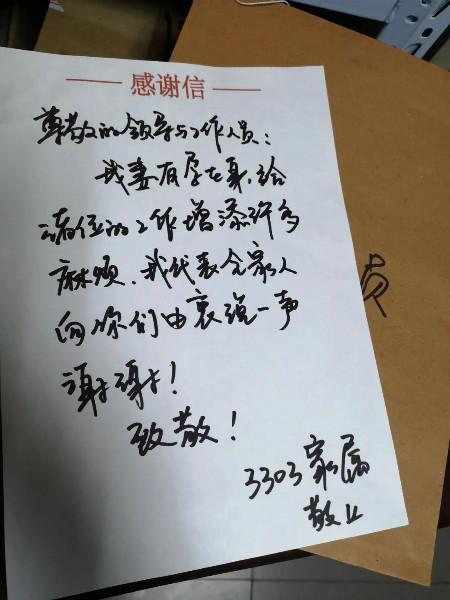 感谢信
尊敬的领导与工作人员：
我妻有孕在身，给
诸位的工作增添许多
麻烦，我代表全家人
向你们由衷说一声
谢谢！
致敬！
3303家属
敬上